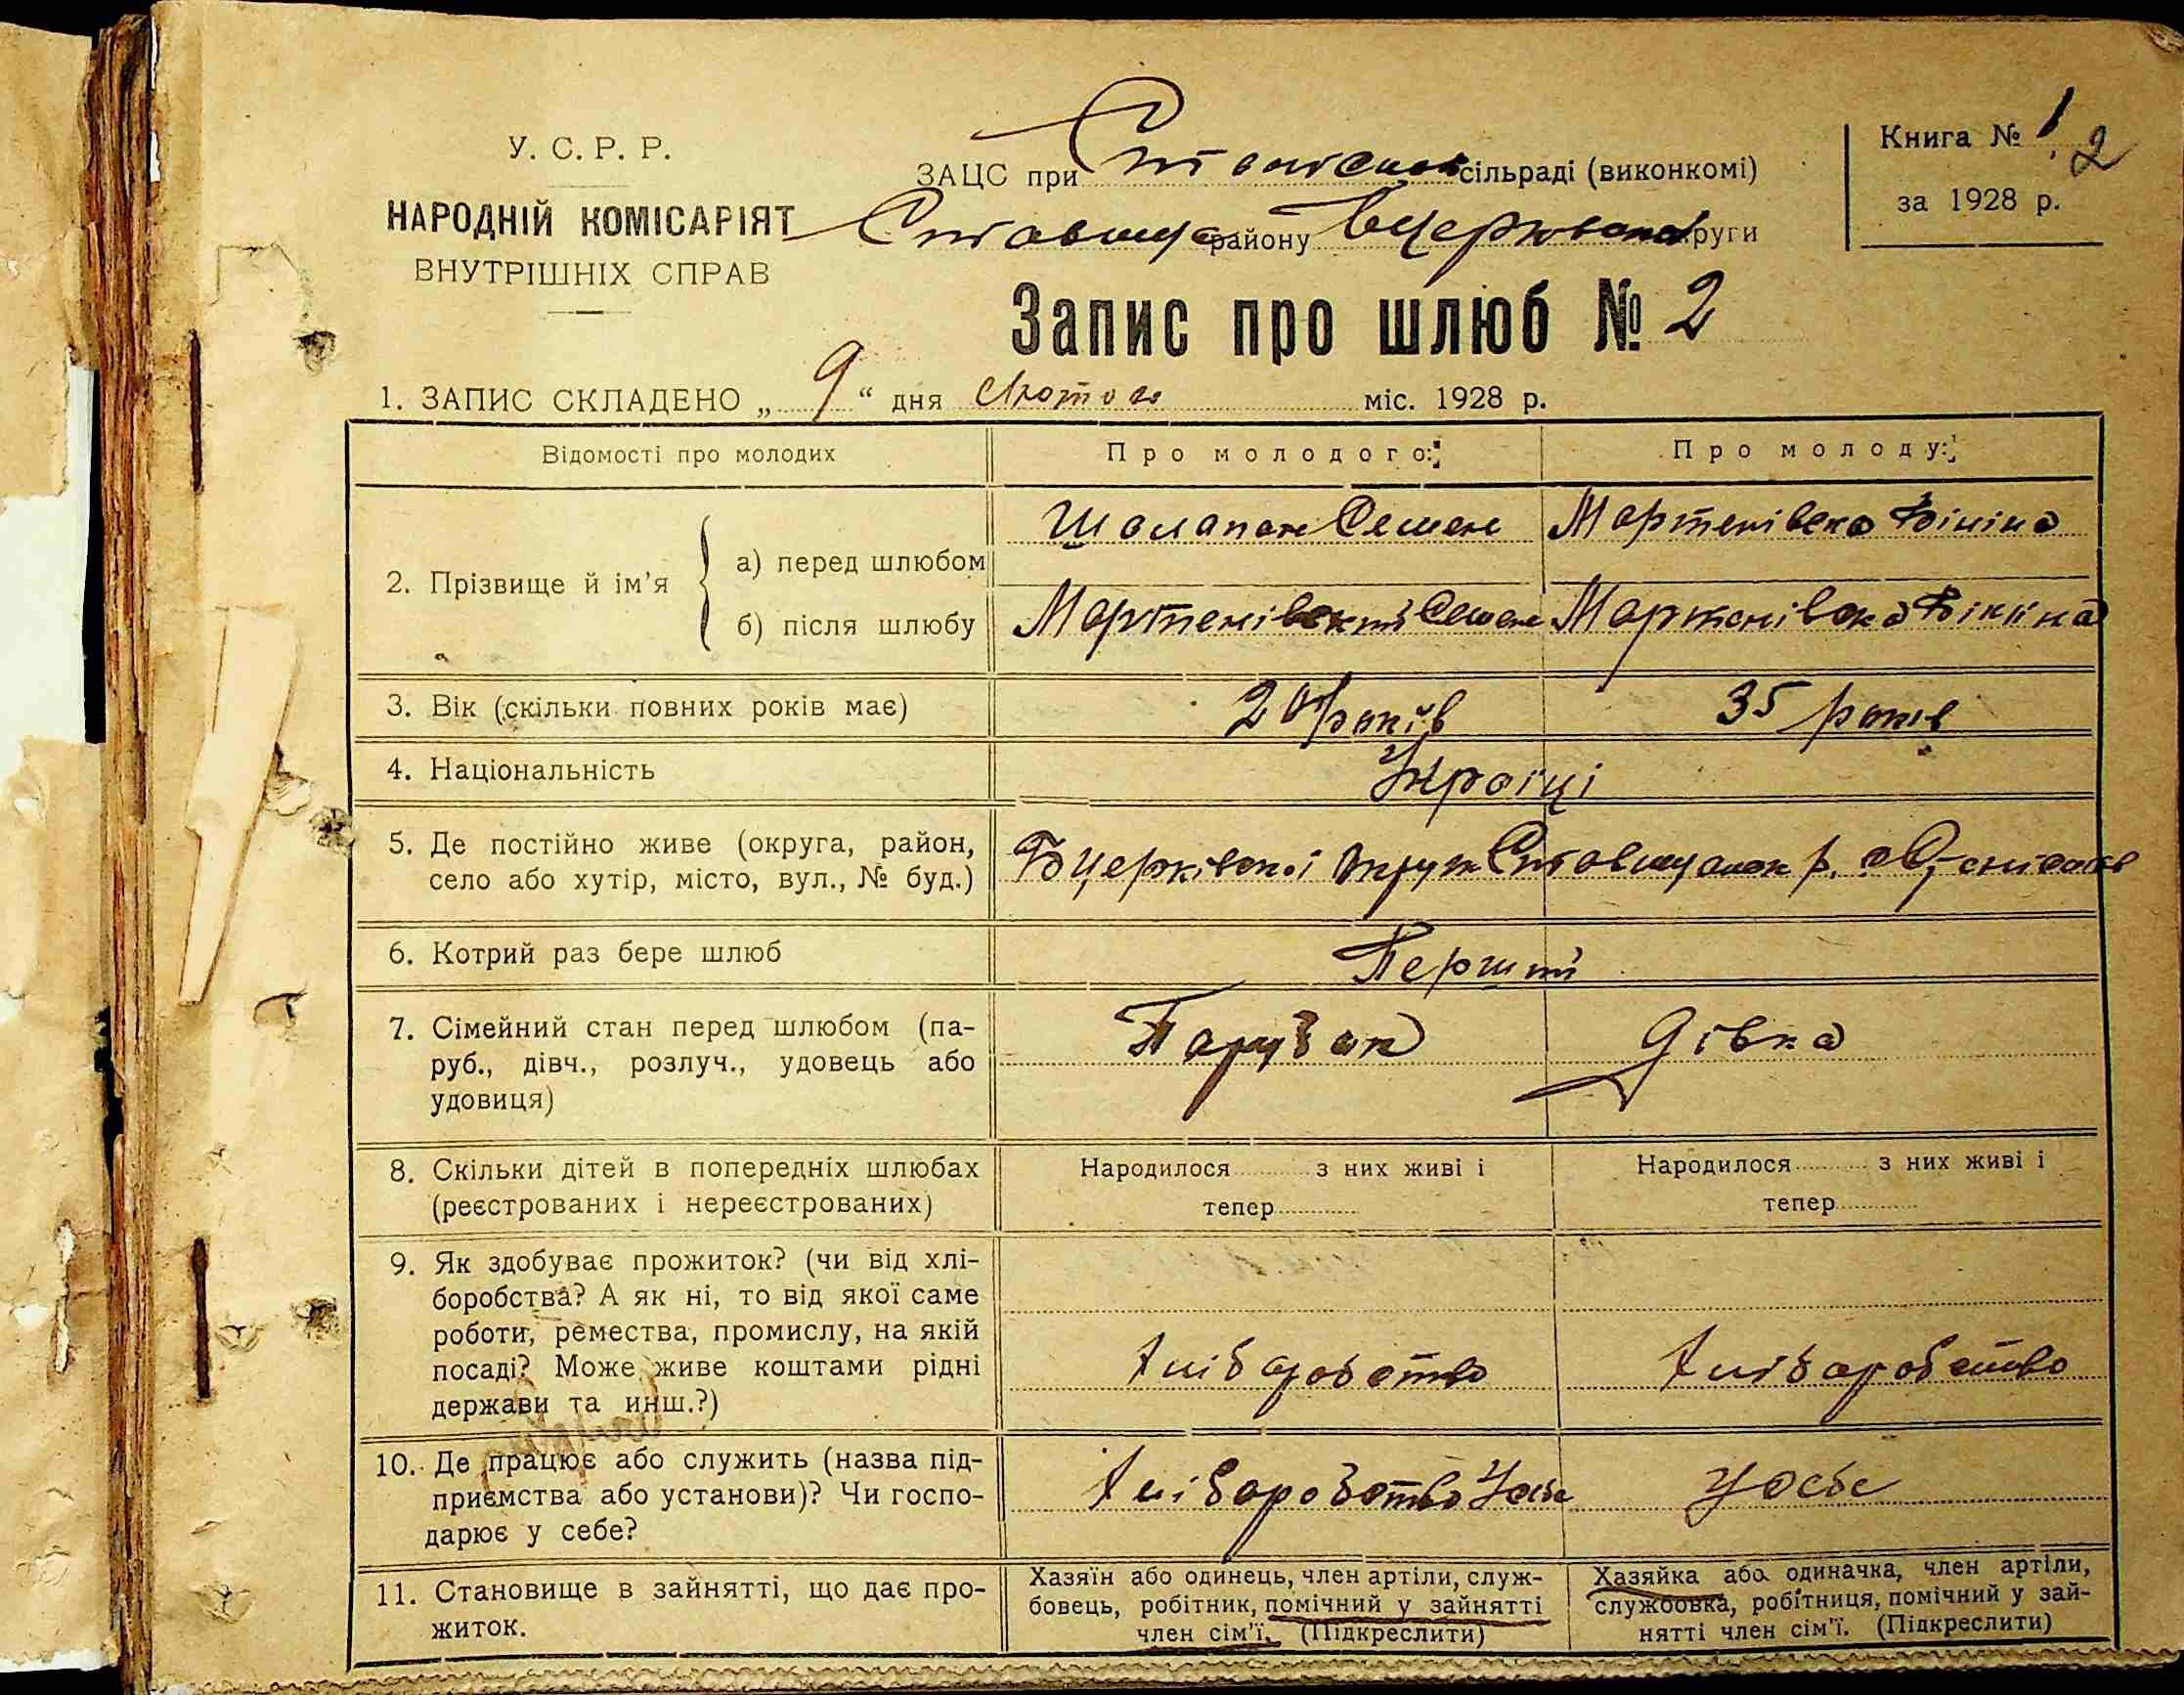 У. С. Р. Р.
НАРОДНІЙ КОМІСАРІЯТ
ВНУТРІШНІХ СПРАВ
ЗАЦС при сільраді (виконкомі)
Ставищ району Бцерківськ округи
Книга № 1
2
за 1928 р.
Запис про шлюб № 2
1. ЗАПИС СКЛАДЕНО „ 9 “ дня Лютого міс. 1928 р.
Відомості про молодих
Про молодого:
Про молоду:
2. Прізвище й ім’я
а) перед шлюбом
Шолопан Семен
Мартенівска Фініна
б) після шлюбу
Мартенівский Семен
Мартенівска Фініна
3. Вік (скільки повних років має)
20 років
35 років
4. Національність
Україці
5. Де постійно живе (округа, район,
село або хутір, місто, вул., № буд.)
Бцерківскоі Округи Ставищанск р. с.
6. Котрий раз бере шлюб
Перший
7. Сімейний стан перед шлюбом (па-
руб., дівч., розлуч., удовець або
удовиця)
Парубок
Дівка
8. Скільки дітей в попередніх шлюбах
(реєстрованих і нереєстрованих)
Народилося з них живі і
тепер
Народилося з них живі і
тепер
9. Як здобуває прожиток? (чи від хлі-
боробства? А як ні, то від якої саме
роботи, ремества, промислу, на якій
посаді? Може живе коштами рідні
держави та инш.?)
Хліборобство
Хліборобство
10. Де працює або служить (назва під-
приємства або установи)? Чи госпо-
дарює у себе?
Хліборобство Усебе
Усебе
11. Становище в зайнятті, що дає про-
житок.
Хазяїн або одинець, член артіли, служ-
бовець, робітник, помічний у зайнятті
член сім’ї. (Підкреслити)
Хазяйка або одиначка, член артіли,
службовка, робітниця, помічний у зай-
нятті член сім’ї. (Підкреслити)